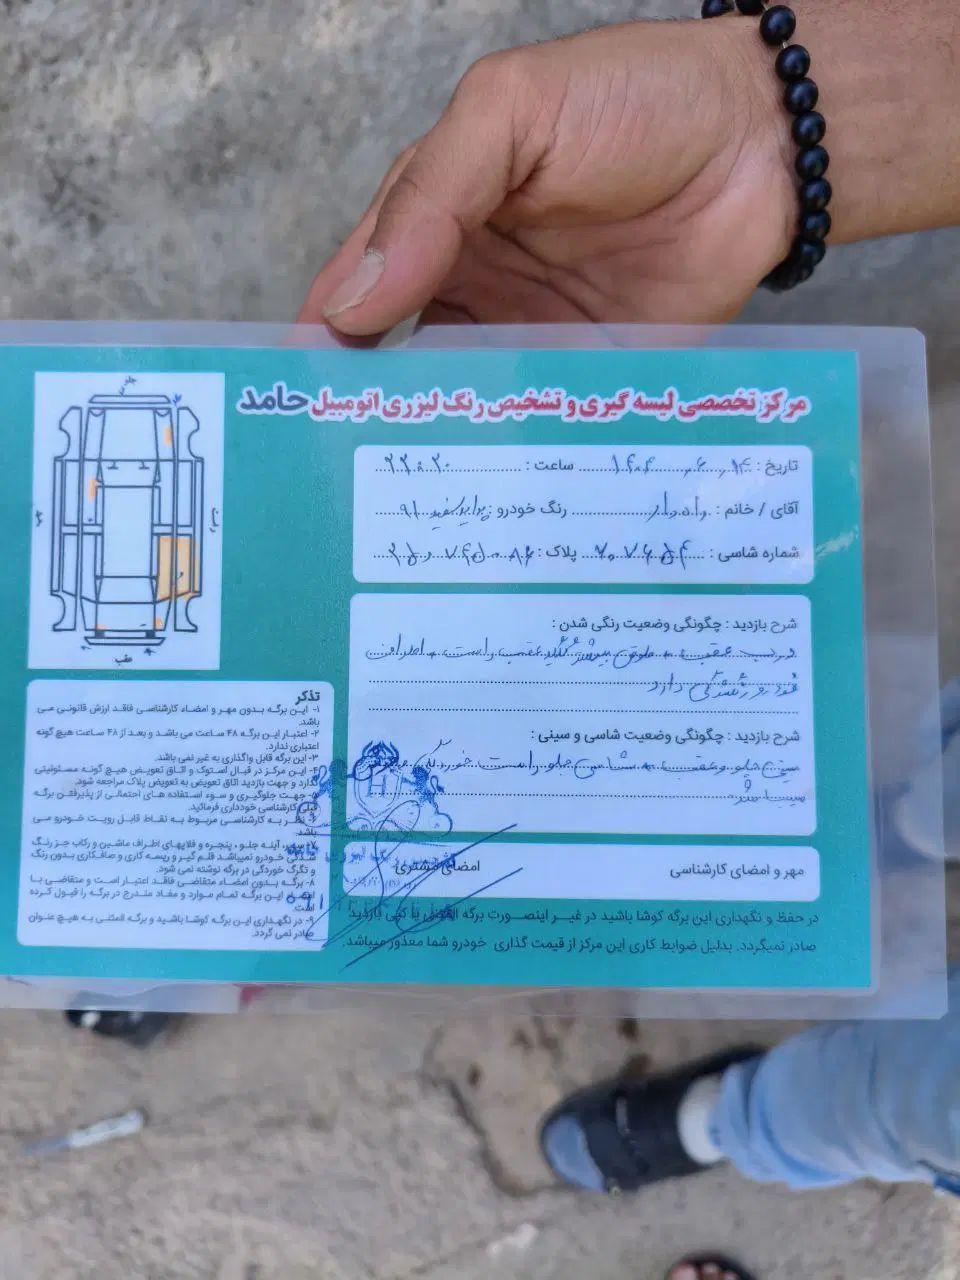 مرکز تخصصی لیسه گیری و تشخیص رنگ لیزری اتومبیل حامد
تاریخ : ۱۴۰۴,۶,۱۴ ساعت :
آقای / خانم : رنگ خودرو : پراید سفید ۹۱
شماره شاسی : پلاک :
شرح بازدید : چگونگی وضعیت رنگی شدن :
درب عقب گلگیر عقب راست
دارد
شرح بازدید : چگونگی وضعیت شاسی و سینی :
سینی جلو و عقب شاسی جلو راست
مهر و امضای کارشناسی
امضای مشتری
در حفظ و نگهداری این برگه کوشا باشید در غیر اینصورت برگه المثنی یا کپی بازدید
صادر نمیگردد. بدلیل ضوابط کاری این مرکز از قیمت گذاری خودرو شما معذور میباشد.
جلو
راست
چپ
عقب
تذکر
۱- این برگه بدون مهر و امضاء کارشناسی فاقد ارزش قانونی می
باشد.
۲- اعتبار این برگه ۴۸ ساعت می باشد و بعد از ۴۸ ساعت هیچ گونه
اعتباری ندارد.
۳- این برگه قابل واگذاری به غیر نمی باشد.
۴- این مرکز در قبال استوک و اتاق تعویض هیچ گونه مسئولیتی
ندارد و جهت بازدید اتاق تعویض به تعویض پلاک مراجعه شود.
۵- جهت جلوگیری و سوء استفاده های احتمالی از پذیرفتن برگه
قبلی کارشناسی خودداری فرمائید.
۶- نظر به کارشناسی مربوط به نقاط قابل رویت خودرو می
باشد.
۷- سپر، آینه جلو، پنجره و قلابهای اطراف ماشین و رکاب جز رنگ
شدگی خودرو نمیباشد قلم گیر و ریسه کاری و صافکاری بدون رنگ
و تگرگ خوردگی در برگه نوشته نمی شود.
۸- برگه بدون امضاء متقاضی فاقد اعتبار است و متقاضی با
امضاء این برگه تمام موارد و مفاد مندرج در برگه را قبول کرده
است.
۹- در نگهداری این برگه کوشا باشید و برگه المثنی به هیچ عنوان
صادر نمی گردد.